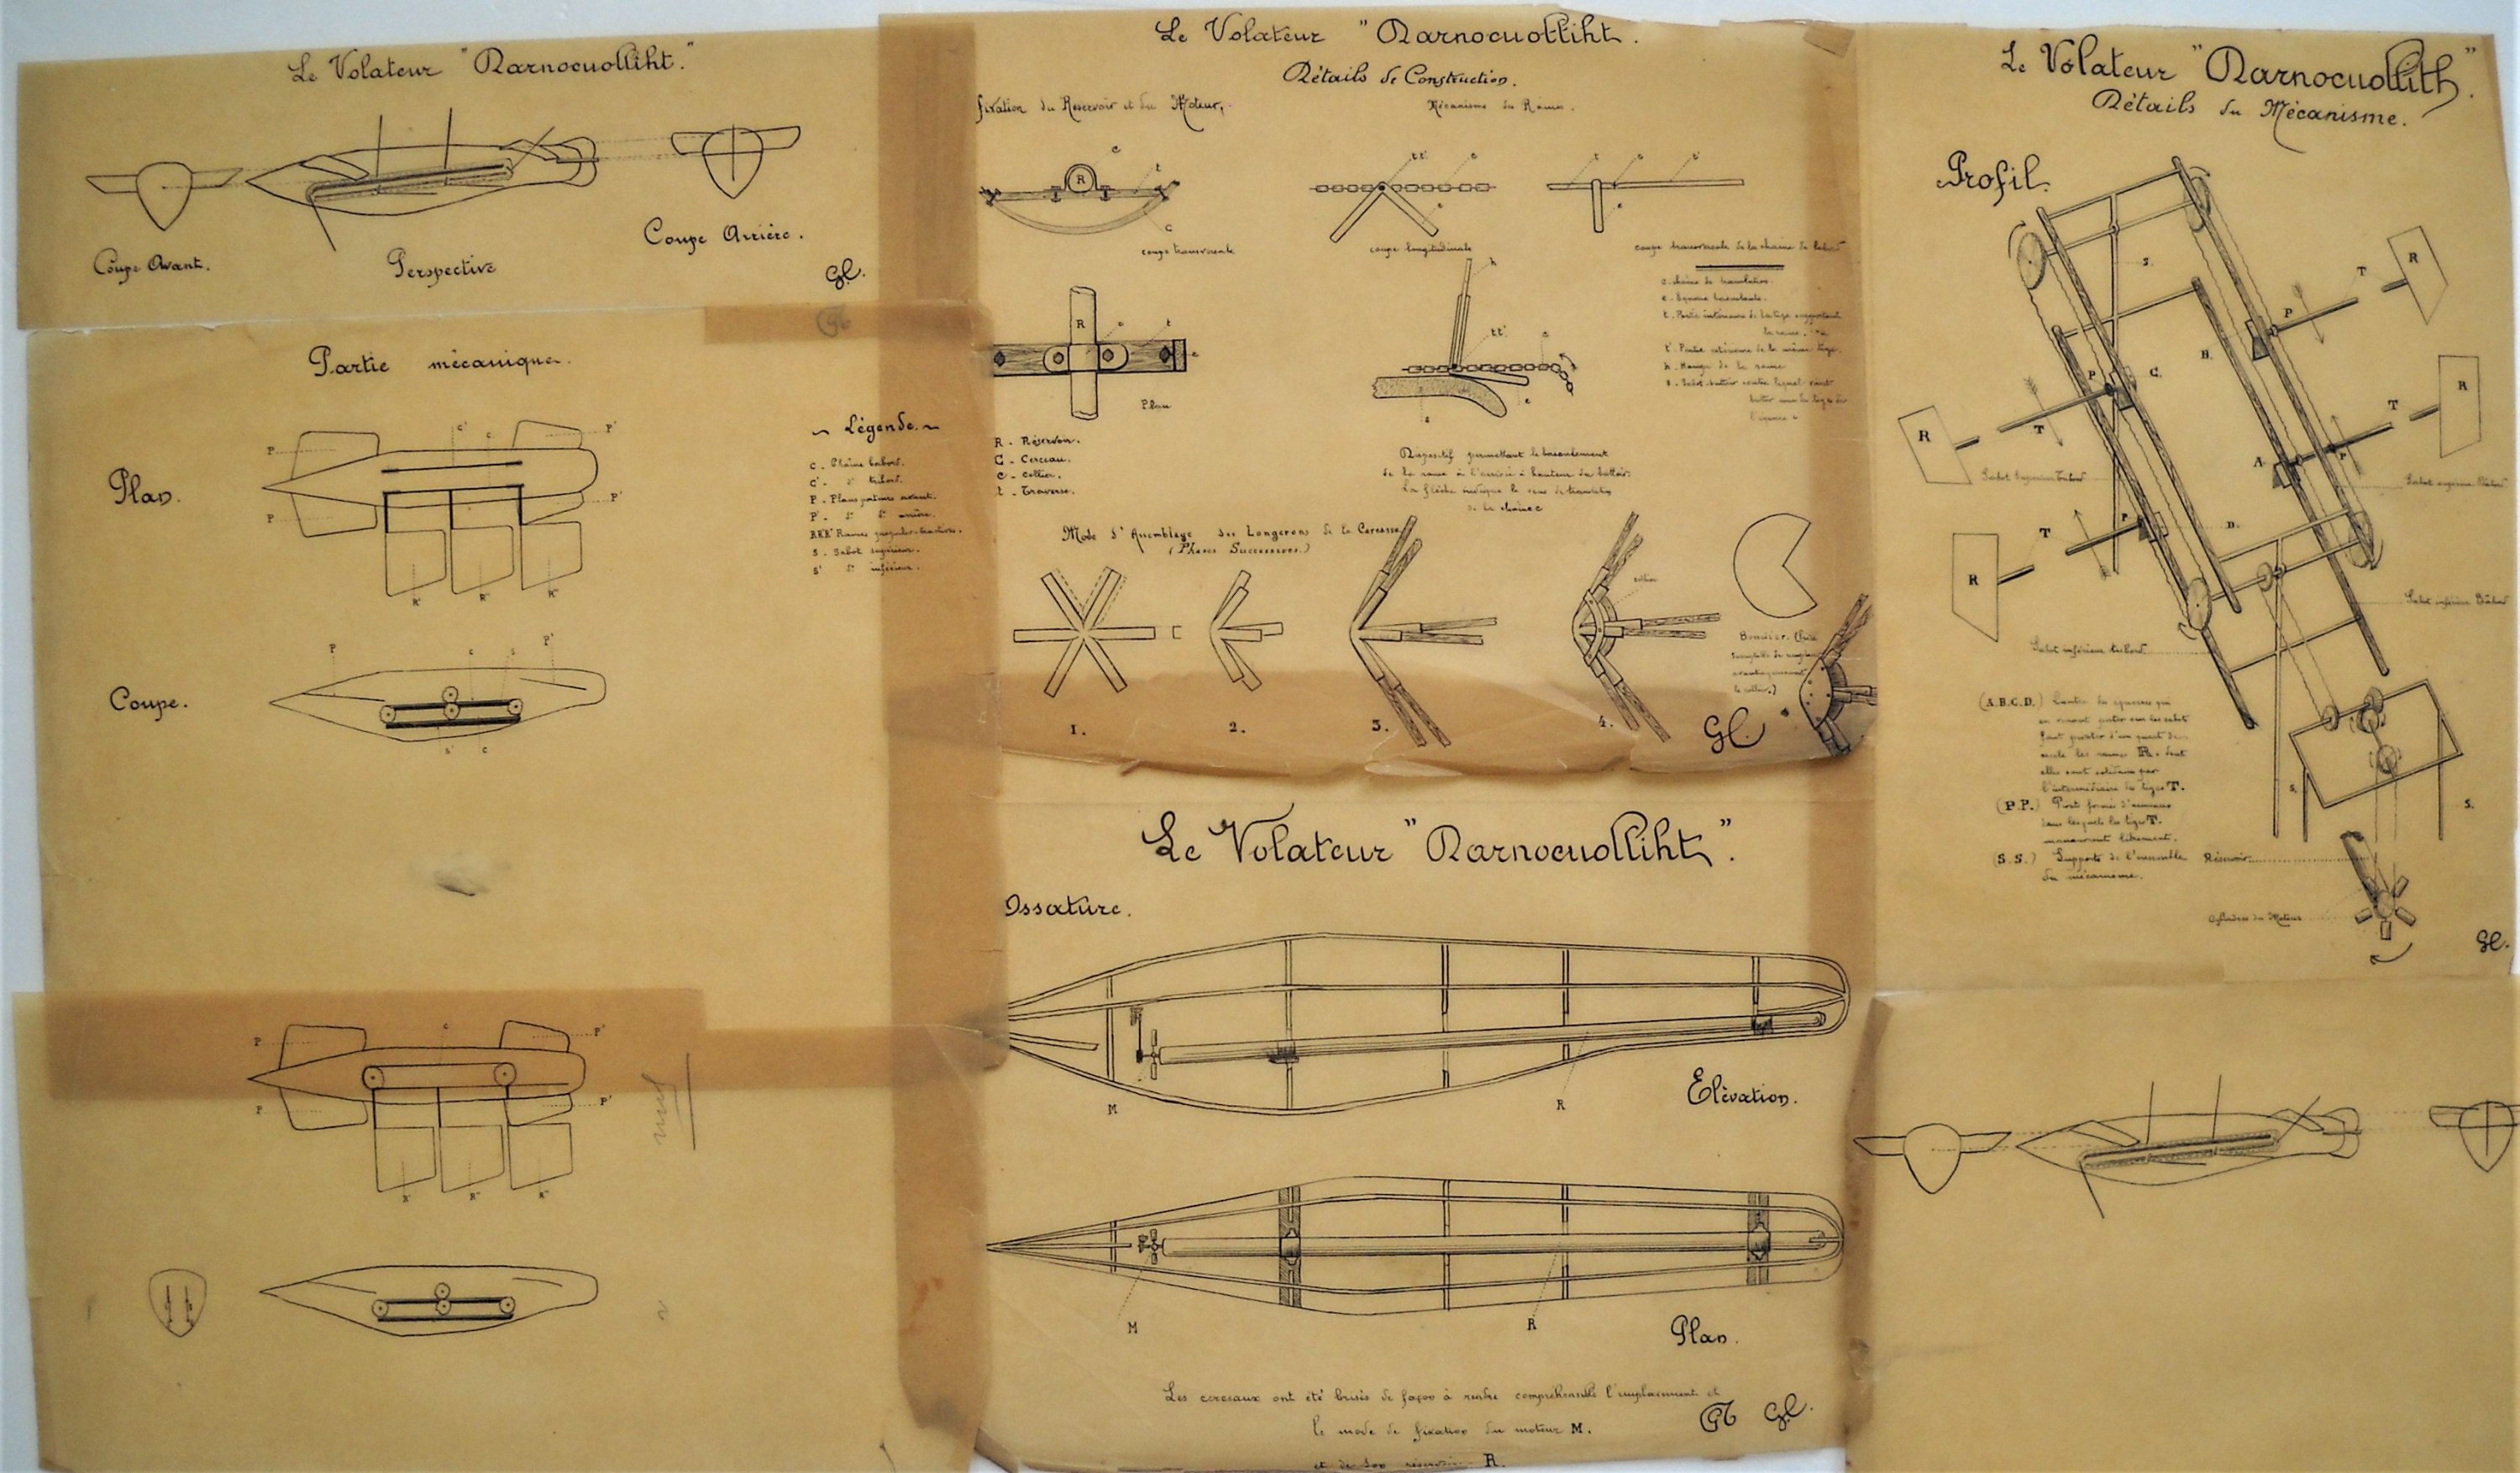 Le Volateur "Darnocuolliht."
Coupe Avant.
Perspective
Coupe Arrière.
GL.
Partie mécanique.
Plan.
P
P
c'
c
P'
P'
R'
R''
R'''
~ Légende. ~
c. Chaîne babord.
c' d° tribord.
P. Plans porteurs avant.
P'. d° d° arrière.
S. Sabot supérieur.
S' d° inférieur.
Coupe.
P
c
s
P'
s'
c
P
P
c
P'
P'
Le Volateur "Darnocuolliht.
Détails de Construction.
fixation du Réservoir et du Moteur,
Mécanisme des Rames.
R
c
t
C
coupe transversale
tt'
c
e
coupe longitudinale
coupe transversale de la chaîne de babord
R
c
t
Plan
R. Réservoir.
C. Cerceau.
c. collier.
t. Traverse.
h
tt'
c
s
e
c. chaîne de translation.
e. Equerre basculante.
t. Partie intérieure de la tige supportant
la rame.
t'. Partie extérieure de la même tige.
h. Manche de la rame
s. Sabot-buttoir contre lequel vient
Dispositif permettant le basculement
de la rame à l'arrivée à hauteur du buttoir.
La flèche indique le sens de translation
de la chaîne c
Mode d'Assemblage des Longerons de la Carcasse
(Phases Successives.)
collier
1.
2.
3.
4.
Bouclier.
le collier.)
GL
Le Volateur "Darnocuolliht".
Ossature.
M
R
Elévation.
M
R
Plan.
Les cerceaux ont été brisés de façon à rendre compréhensible l'emplacement et
le mode de fixation du moteur M.
et de son réservoir R.
GL.
Le Volateur "Darnocuollith".
Détails du Mécanisme.
Profil.
S.
R
T
P
B.
C.
P
R
T
R
T
A.
P
Sabot supérieur Tribord
Sabot supérieur Bâbord
P
D.
T
R
Sabot inférieur Bâbord
Sabot inférieur tribord
(A.B.C.D.)
l'intermédiaire des tiges T.
(P.P.)
dans lesquels les tiges T.
manœuvrent librement.
(S.S.) Supports de l'ensemble
du mécanisme.
S.
S.
Réservoir
Cylindres du Moteur
GL.